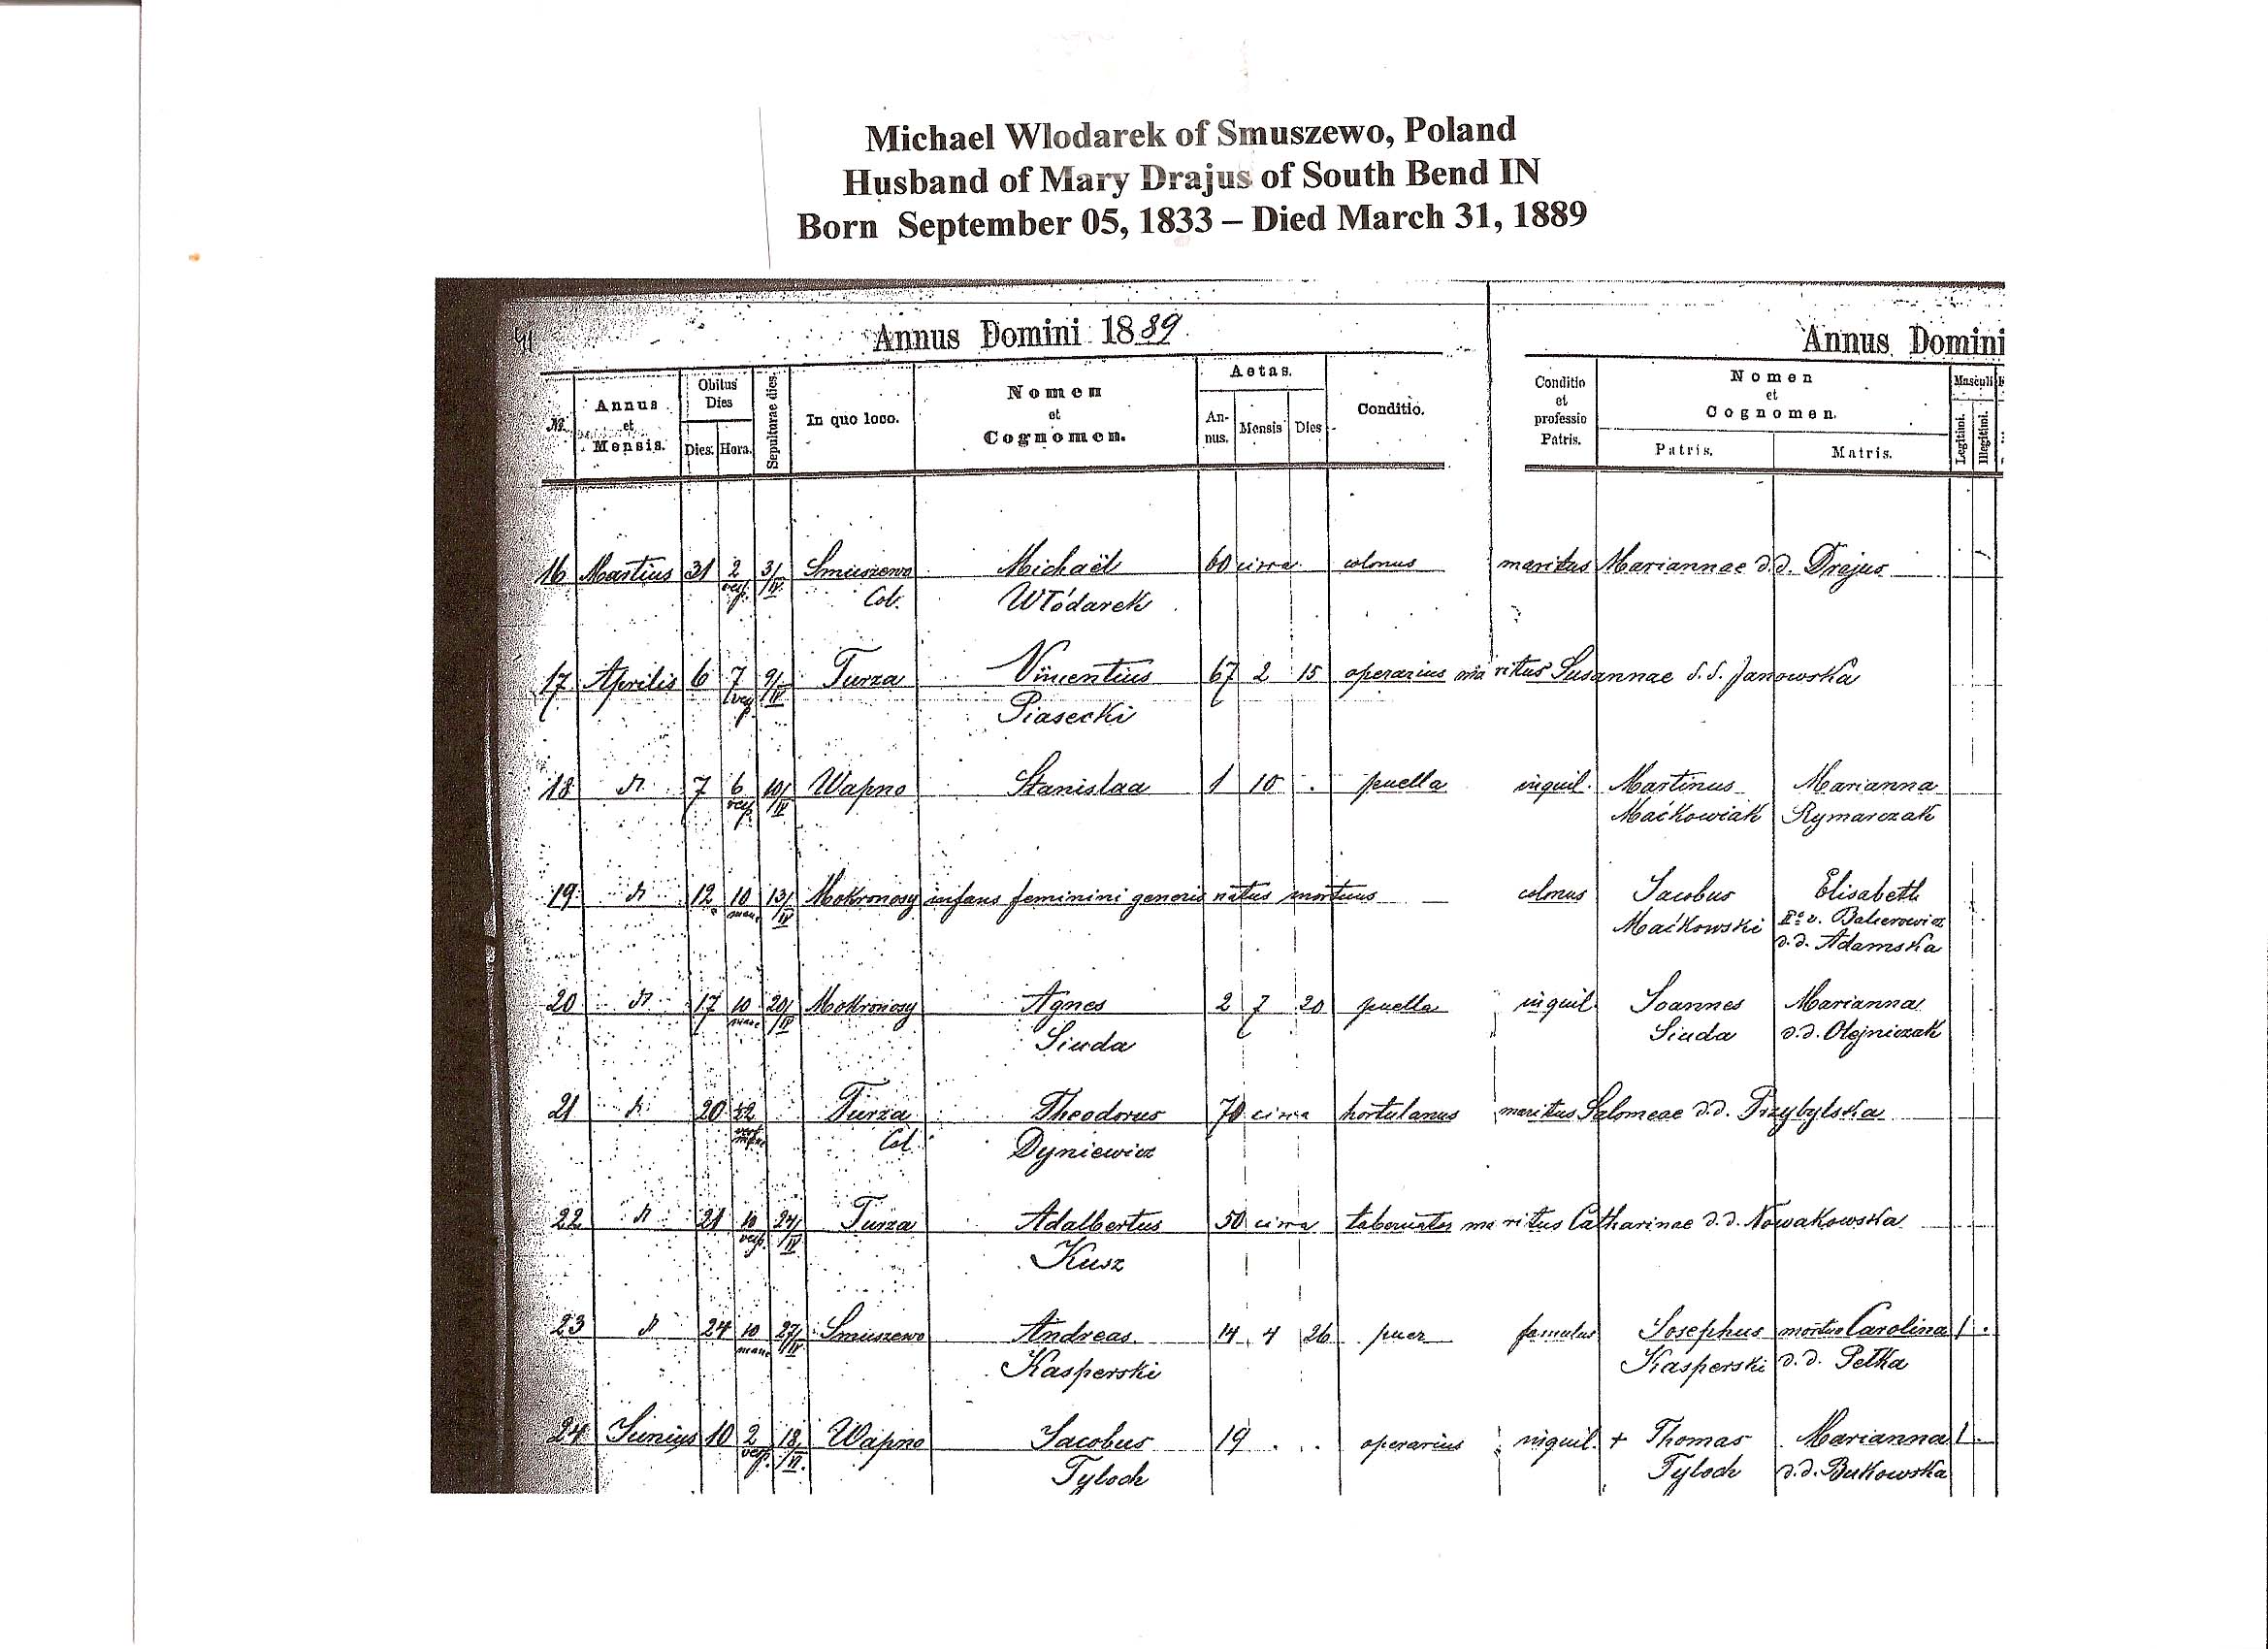 Michael Wlodarek of Smuszewo, Poland
Husband of Mary Drajus of South Bend IN
Born September 05, 1833 – Died March 31, 1889
Annus Domini 1889.
Annus Domini
No. Annus et Mensis. Obitus Dies Dies. Hora. Sepulturae dies. In quo loco. Nomen et Cognomen. Aetas. Annus. Mensis Dies Conditio. Conditio et professio Patris. Nomen et Cognomen. Patris. Matris. Masculi Legitimi. Illegitimi.
16 Martius 31 2 3/ Smuszewo Michaël 60 circa colonus maritus Mariannae d.d. Drajus
vesp. IV Col. Włódarek
17 Aprilis 6 7 9/ Turza Vincentius 67 2 15 operarius maritus Susannae d.d. Janowska
vesp. IV Piasecki
18 7 6 10/ Wapno Stanislaa 1 10 . puella inquil. Martinus Marianna
vesp. IV Maćkowiak Rymarczak
19 12 10 13/ Mokronosy infans feminini generis natus mortuus colonus Jacobus Elisabeth
mane IV Maćkowski IIº v. Balcerowicz
d.d. Adamska
20 17 10 20/ Mokronosy Agnes 2 7 20 puella inquil. Joannes Marianna
mane IV Siuda Siuda d.d. Olejniczak
21 20 Turza Theodorus 70 circa hortulanus maritus Salomeae d.d. Przybylska
Col. Dyniewicz
22 21 10 24/ Turza Adalbertus 50 circa tabernator maritus Catharinae d.d. Nowakowska
vesp. IV. Kusz
23 24 10 27/ Smuszewo Andreas 14 4 26 puer famulus Josephus mortua Carolina 1 .
mane IV. Kasperski Kasperski d.d. Pełka
24 Junius 10 2 18/ Wapno Jacobus 19 . . operarius inquil. + Thomas Marianna 1 .
vesp. VI. Tyloch Tyloch d.d. Bukowska